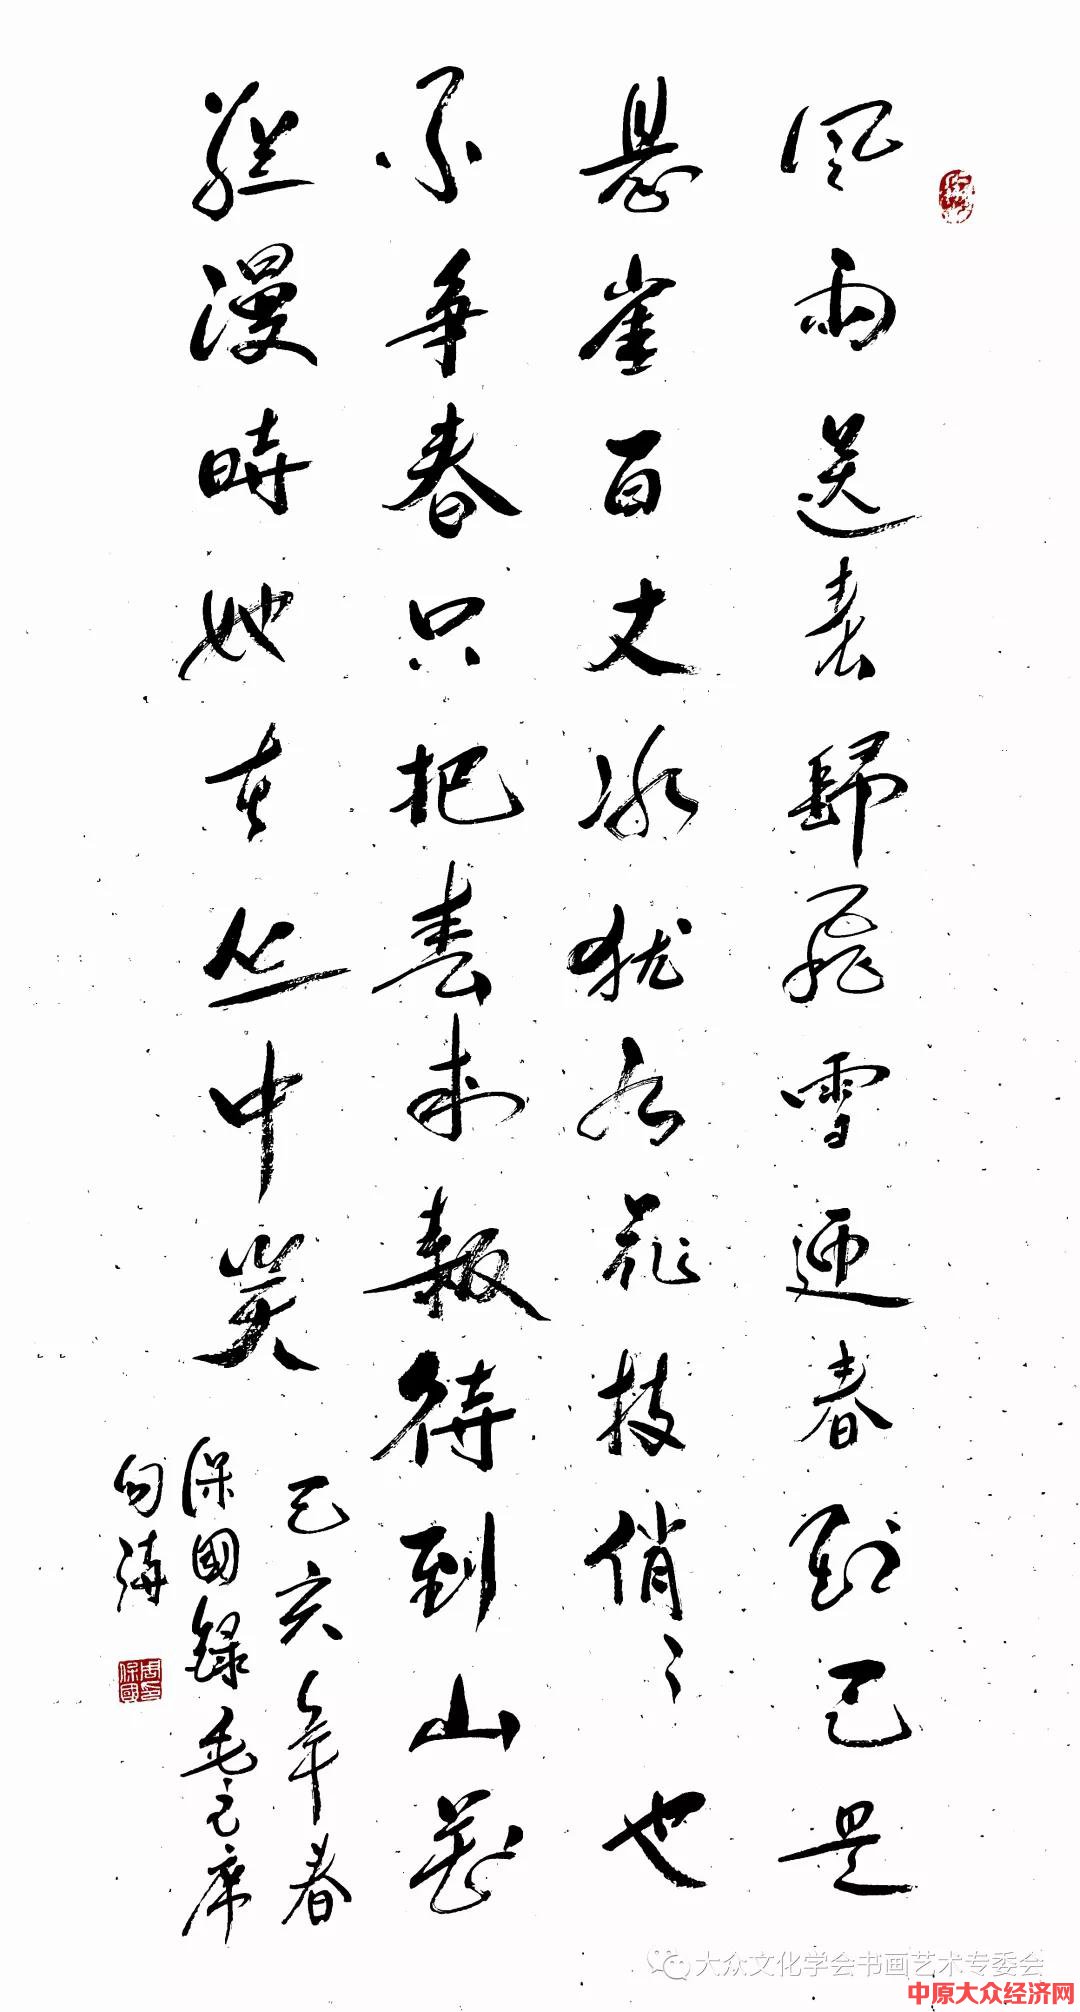 風雨送春歸飛雪迎春到已是
悬崖百丈冰犹有花枝俏〻也
不爭春只把春來報待到山花
爛漫時她在丛中笑
己亥年春
保國錄毛主席
周印保國
大众文化学会书画艺术专委会
中原大众经济网